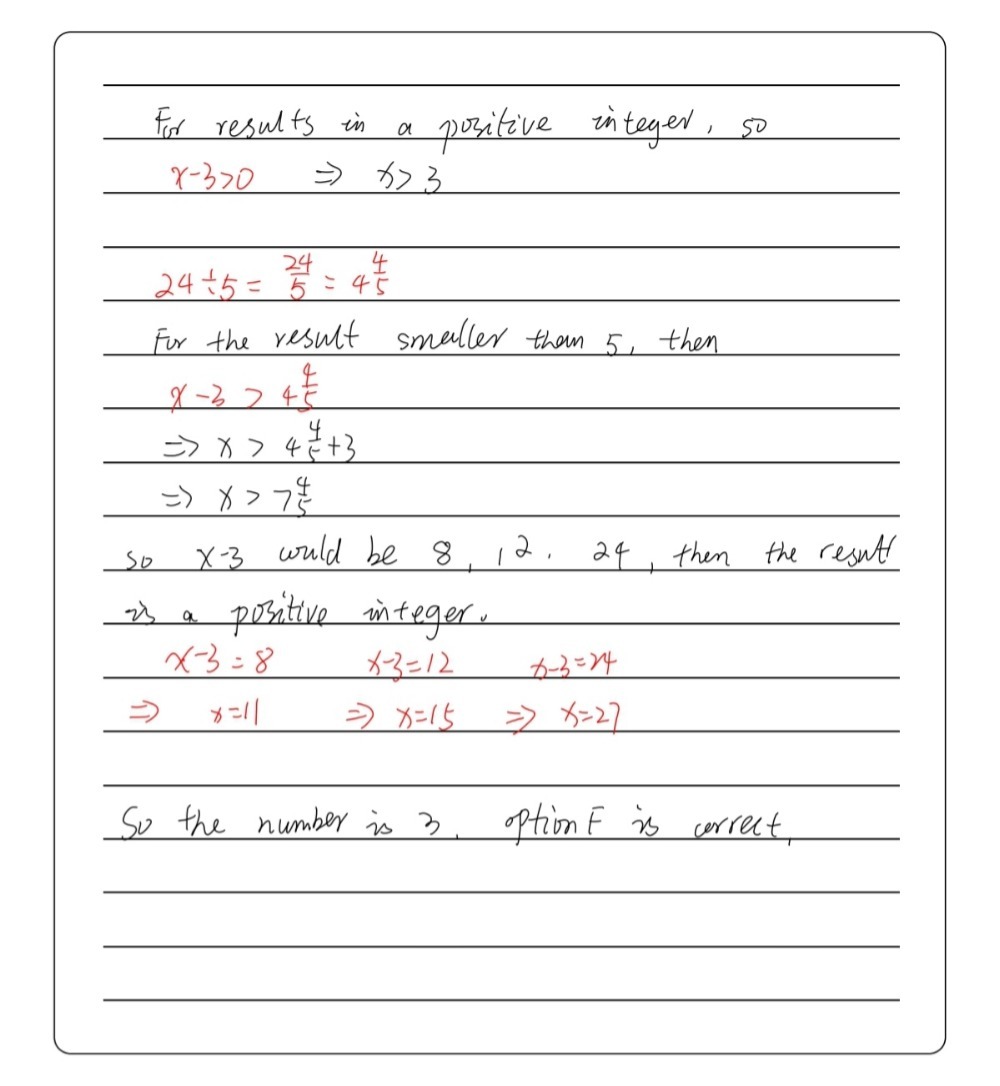 For results in a positive integer, so
x-3>0 ⇒ x>3
24÷5 = 24/5 = 4 4/5
For the result smaller than 5, then
x-3 > 4 4/5
⇒ x > 4 4/5 +3
⇒ x > 7 4/5
so x-3 would be 8, 12, 24, then the result
is a positive integer.
x-3=8 x-3=12 x-3=24
⇒ x=11 ⇒ x=15 ⇒ x=27
So the number is 3. option F is correct,